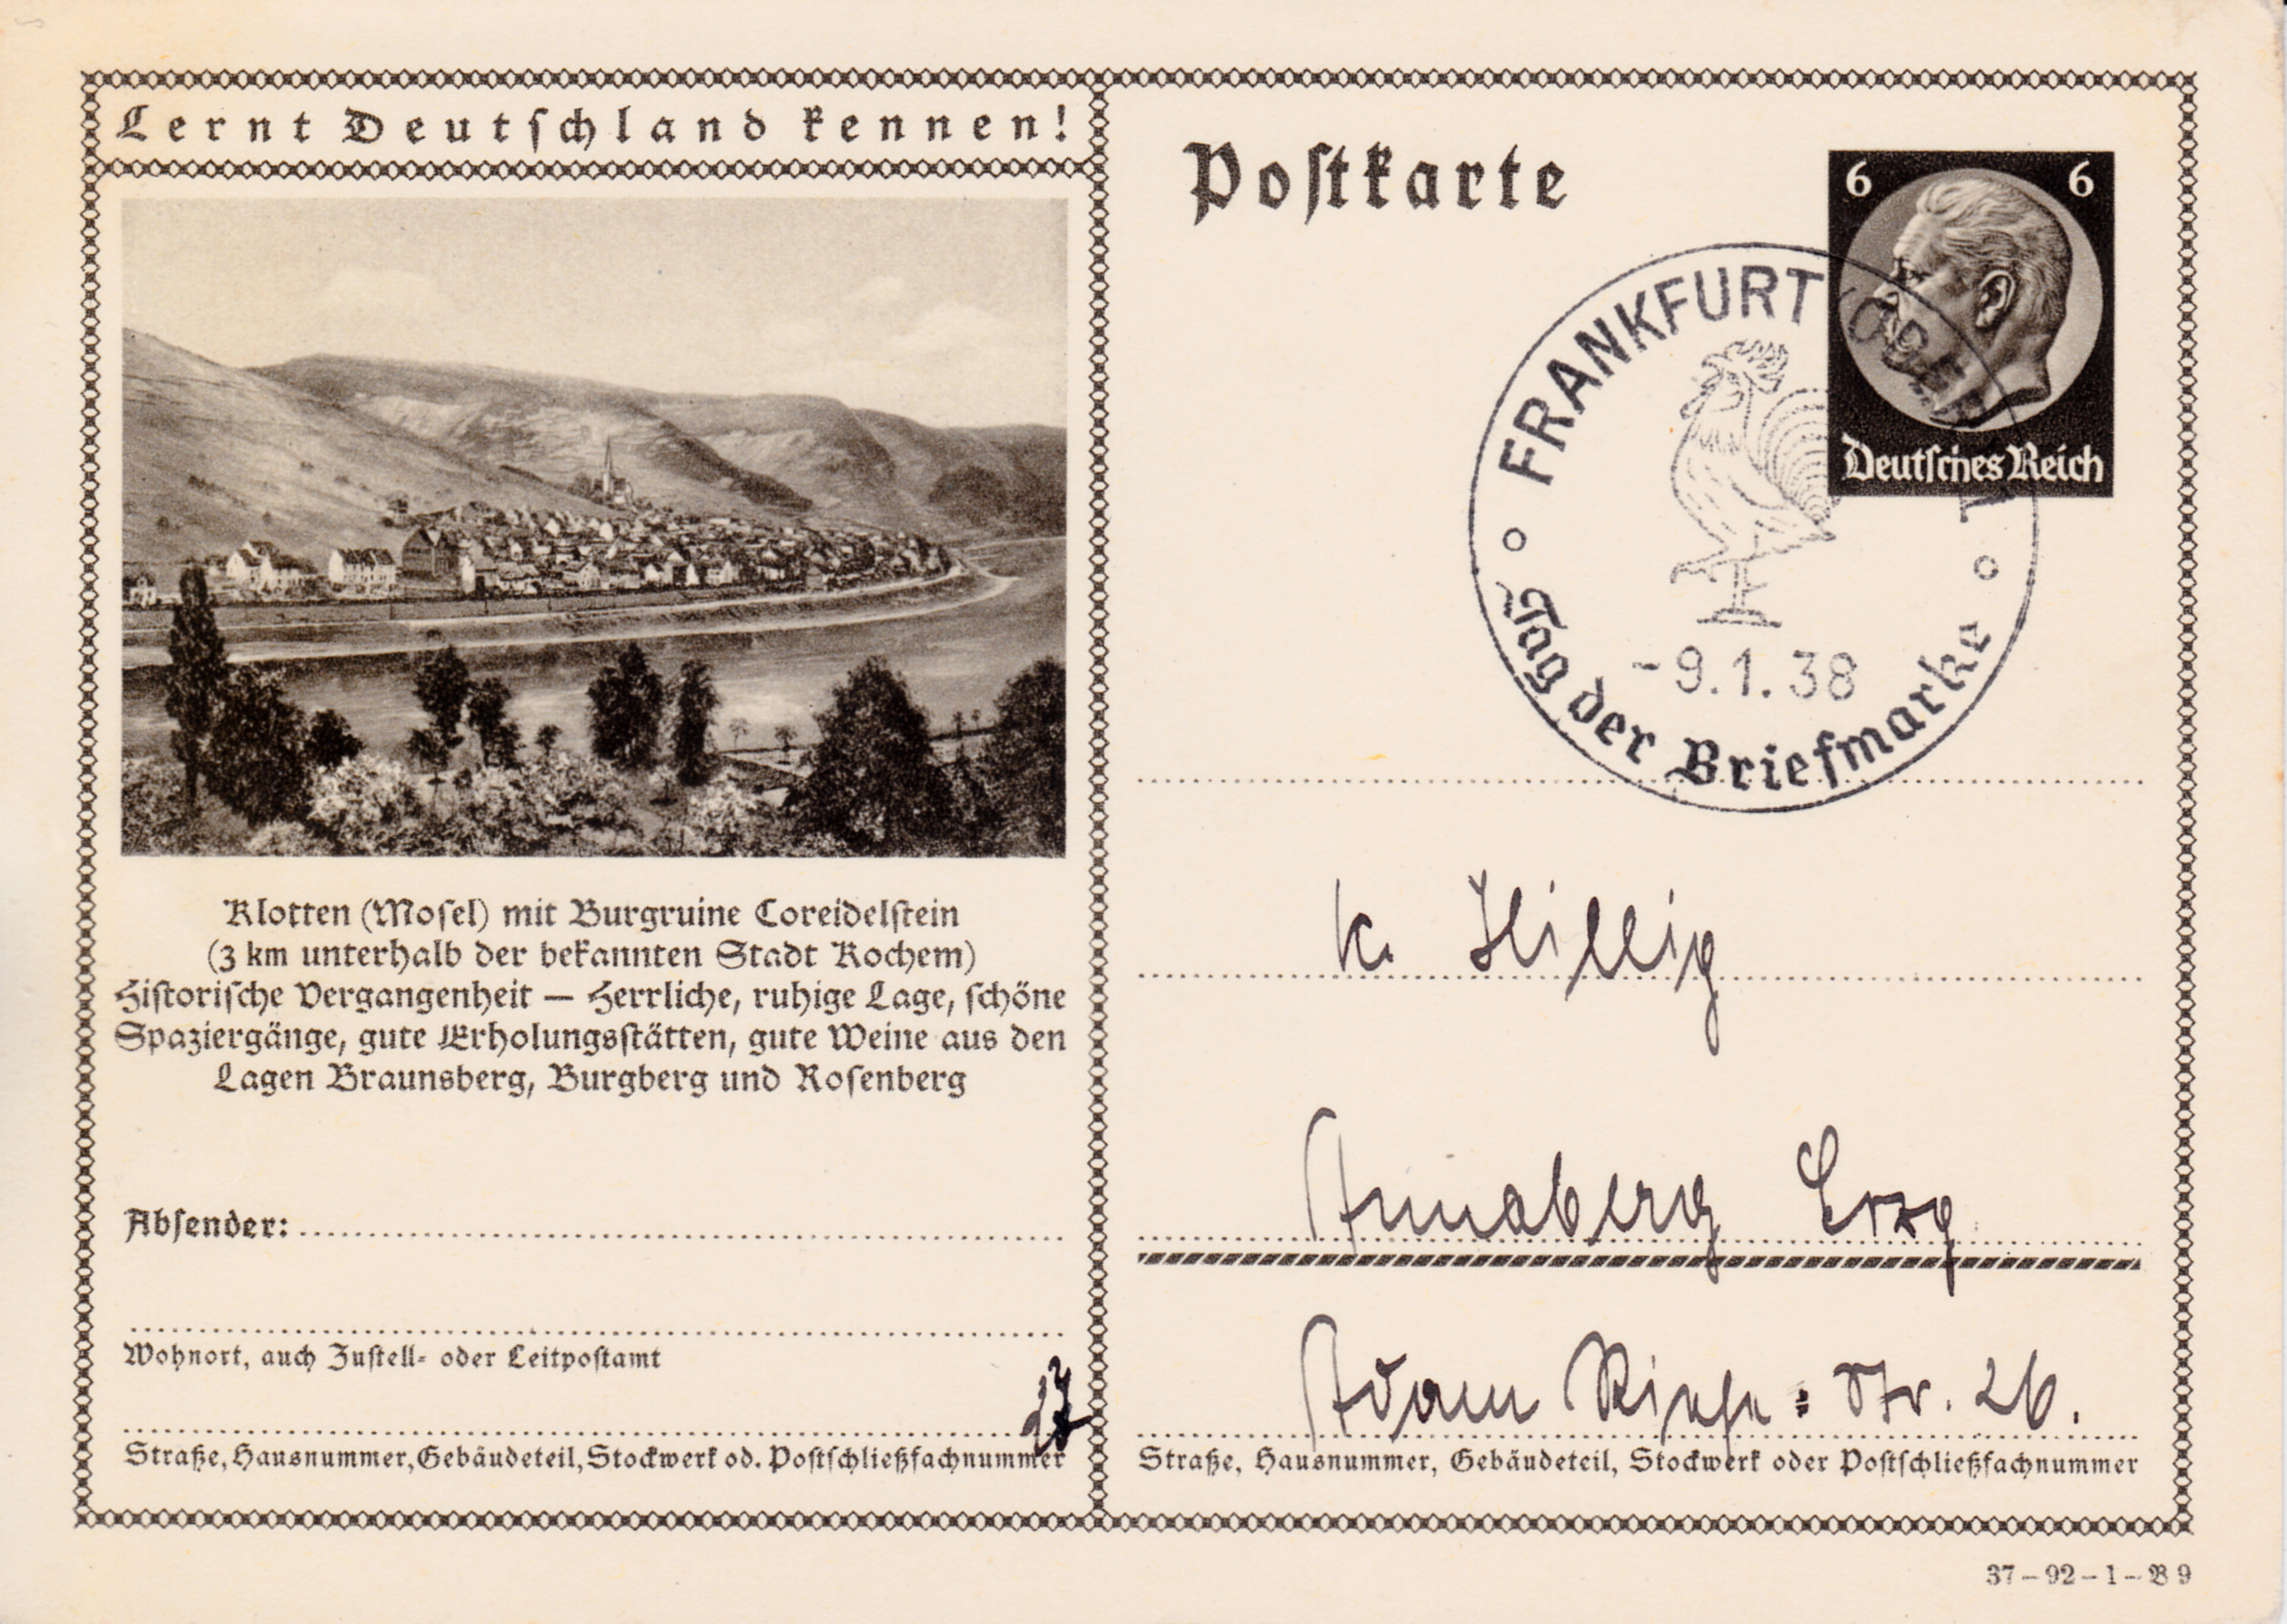 Lernt Deutschland kennen!
Klotten (Mosel) mit Burgruine Coreidelstein
(3 km unterhalb der bekannten Stadt Kochem)
Historische Vergangenheit — Herrliche, ruhige Lage, schöne
Spaziergänge, gute Erholungsstätten, gute Weine aus den
Lagen Braunsberg, Burgberg und Rosenberg
Absender:
Wohnort, auch Zustell- oder Leitpostamt
Straße, Hausnummer, Gebäudeteil, Stockwerk od. Postschließfachnummer
Postkarte
6 6
Deutsches Reich
FRANKFURT (ODER) 1
-9.1.38
Tag der Briefmarke
K. Hillig
Annaberg Erzg
Adam Riese-Str. 26.
Straße, Hausnummer, Gebäudeteil, Stockwerk oder Postschließfachnummer
37-92-1-B9